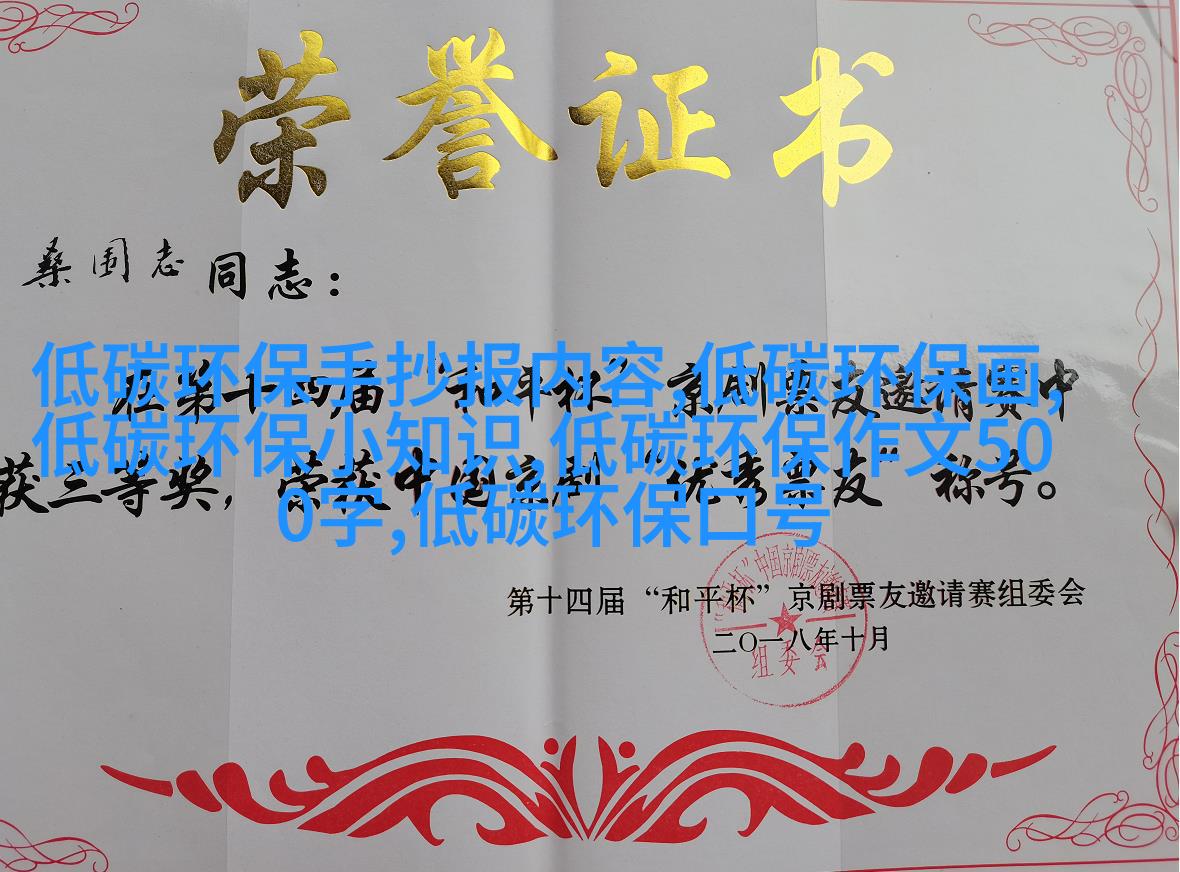 荣誉证书
桑国志同志：
低碳环保手抄报内容,低碳环保画,
在第十四届“和平杯”京剧票友邀请赛中
低碳环保小知识,低碳环保作文50
获三等奖，荣获中国京剧“优秀票友”称号。
0字,低碳环保口号
第十四届“和平杯”京剧票友邀请赛组委会
二〇一八年十月
组委会